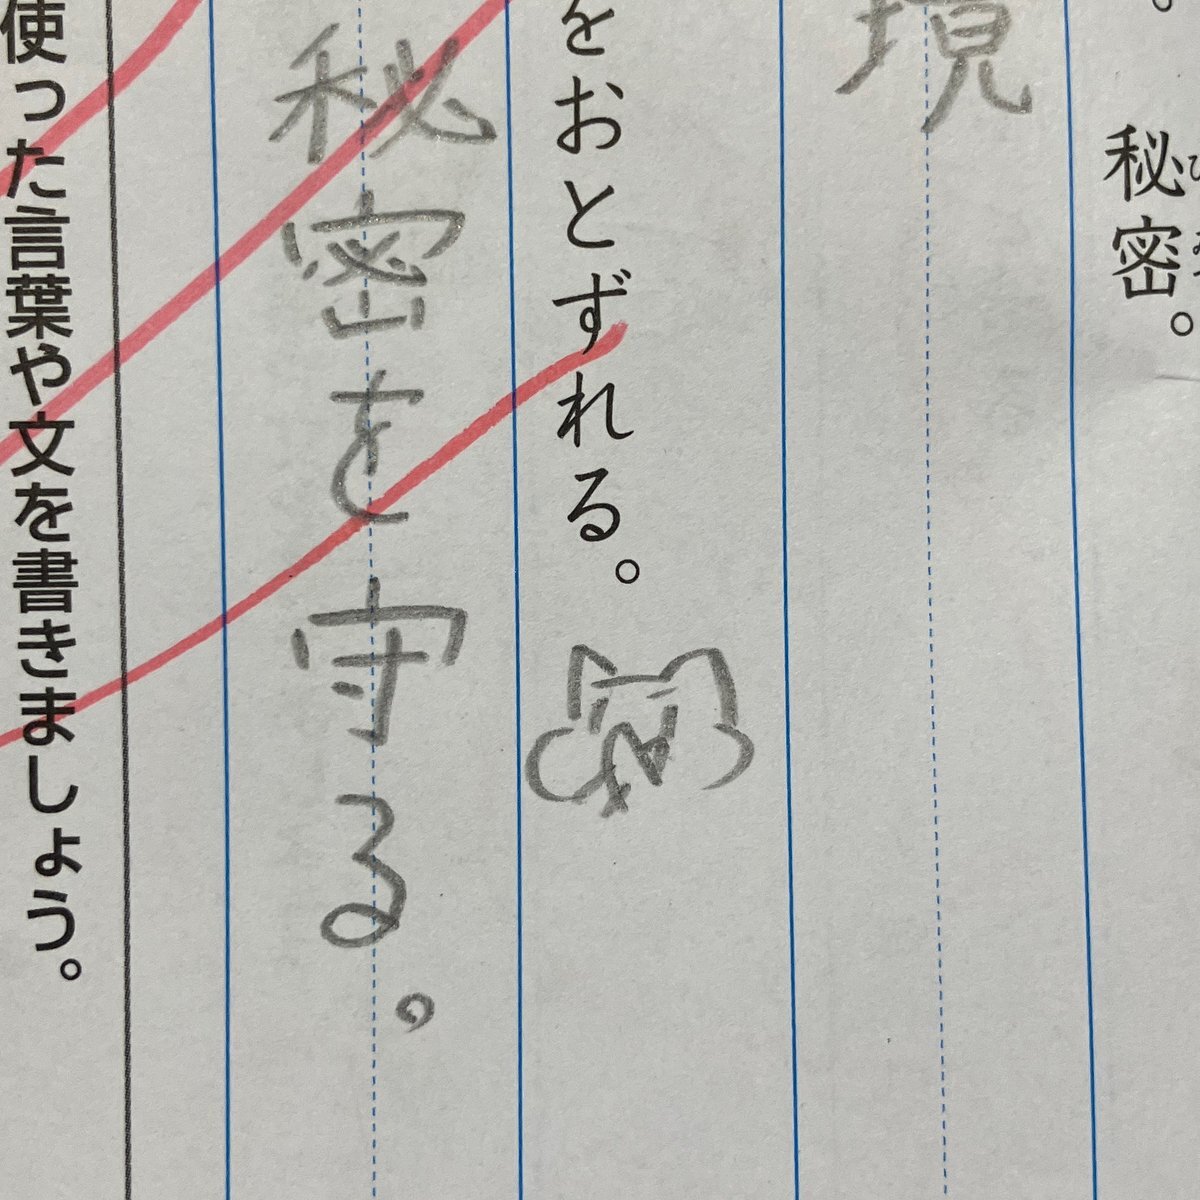 。
秘密。
境
をおとずれる。
秘密を守る。
使った言葉や文を書きましょう。